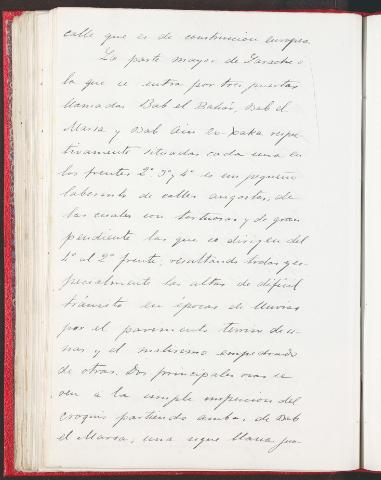 calle que es de construccion europea.
La parte mayor de Larache a
la que se entra por tres puertas
llamadas Bab el Bahar, Bab el
Marsa y Bab Ain es-Xaka respec
tivamente situadas cada una en
los frentes 2º 3º y 4º es un pequeño
laberinto de calles angostas, de
las cuales son tortuosas y de gran
pendiente las que se dirigen del
4º al 2º frente, resultando todas y es-
pecialmente las altas de dificil
tránsito en épocas de lluvias
por el pavimento terrizo de u-
nas y el malisimo empedrado
de otras. Dos principales vias se
ven á la simple inspeccion del
croquis partiendo ambas de Bab
el Marsa; una sigue llana